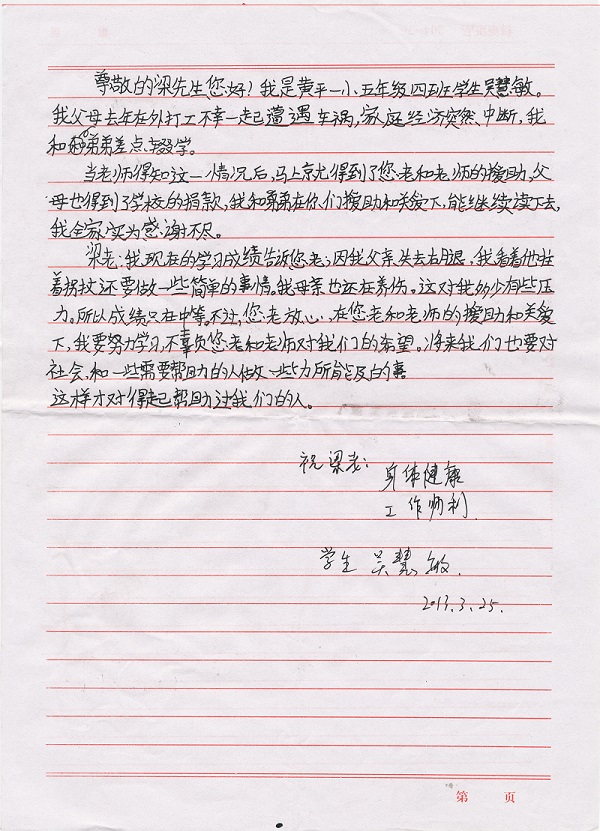 尊敬的梁先生您好！我是黄平一小五年级四班学生吴慧敏。
我父母去年在外打工不幸一起遭遇车祸，家庭经济突然中断，我
和弟弟差点辍学。
当老师得知这一情况后，马上就得到了您老和老师的援助，父
母也得到了学校的捐款，我和弟弟在你们援助和关爱下，能继续读下去，
我全家实为感谢不尽。
梁老：我现在的学习成绩告诉您老；因我父亲失去右腿，我看着他拄
着拐杖还要做一些简单的事情。我母亲也还在养伤。这对我多少有些压
力。所以成绩只在中等。不过，您老放心，在您老和老师的援助和关爱
下，我要努力学习，不辜负您老和老师对我们的希望。将来我们也要对
社会，和一些需要帮助的人做一些力所能及的事
这样才对得起帮助过我们的人。
祝梁老：
身体健康
工作顺利
学生 吴慧敏
2013.3.25.
第 页